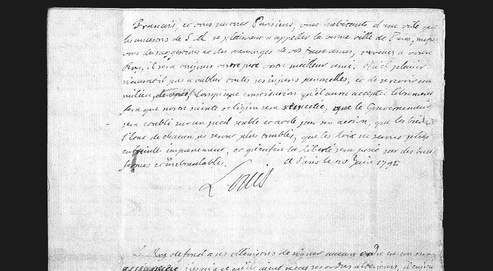 Francais, et vous surtout Parisiens, vous habitants d'une ville que
les ancetres de S. M. se plaisaient a appeller la bonne ville de Paris, mefiez
vous des suggestions et des mensonges de vos faux amis, revenez a votre
Roy, il sera toujours votre pere votre meilleur ami. Quel plaisir
n'aura-t-il pas a oublier toutes ses injures personnelles, et de se revoir au
milieu de vous, lorsqu'une constitution qu'il aura acceptée librement
fera que notre sainte religion sera respectée, que le Gouvernement
sera etabli sur un pied stable et utile par son action, que les biens et
l'etat de chacun ne seront plus troublés, que les loix ne seront plus
enfreintes impunement, et qu'enfin la liberté sera posée sur des bases
fermes et inebranlables. A Paris le 20 Juin 1791
Louis
Le Roy defend a ses ministres de signer aucun ordre en son nom